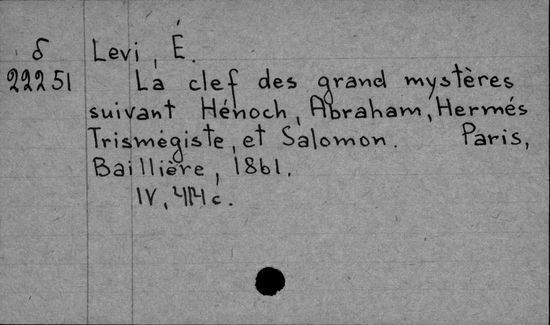 δ Levi, É.
22251 La clef des grand mystères
suivant Hénoch, Abraham, Hermés
Trismégiste, et Salomon. Paris,
Baillière, 1861.
IV, с.